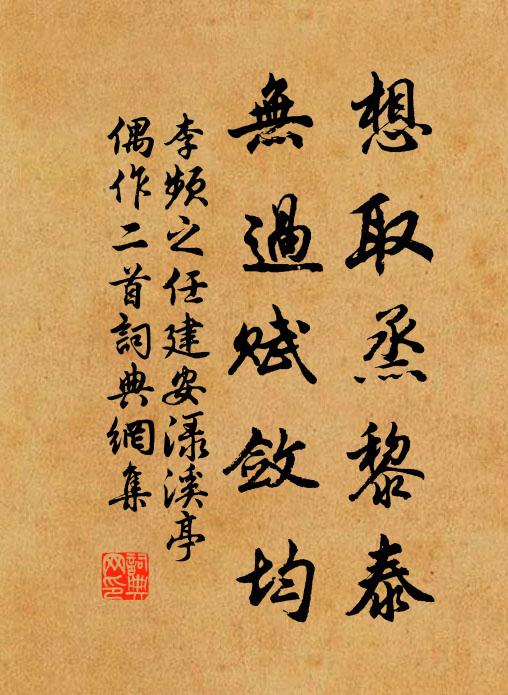 想取烝黎泰
無過賦斂均
李頻之任建安淥溪亭
偶作二首詞典網集
詞典網印